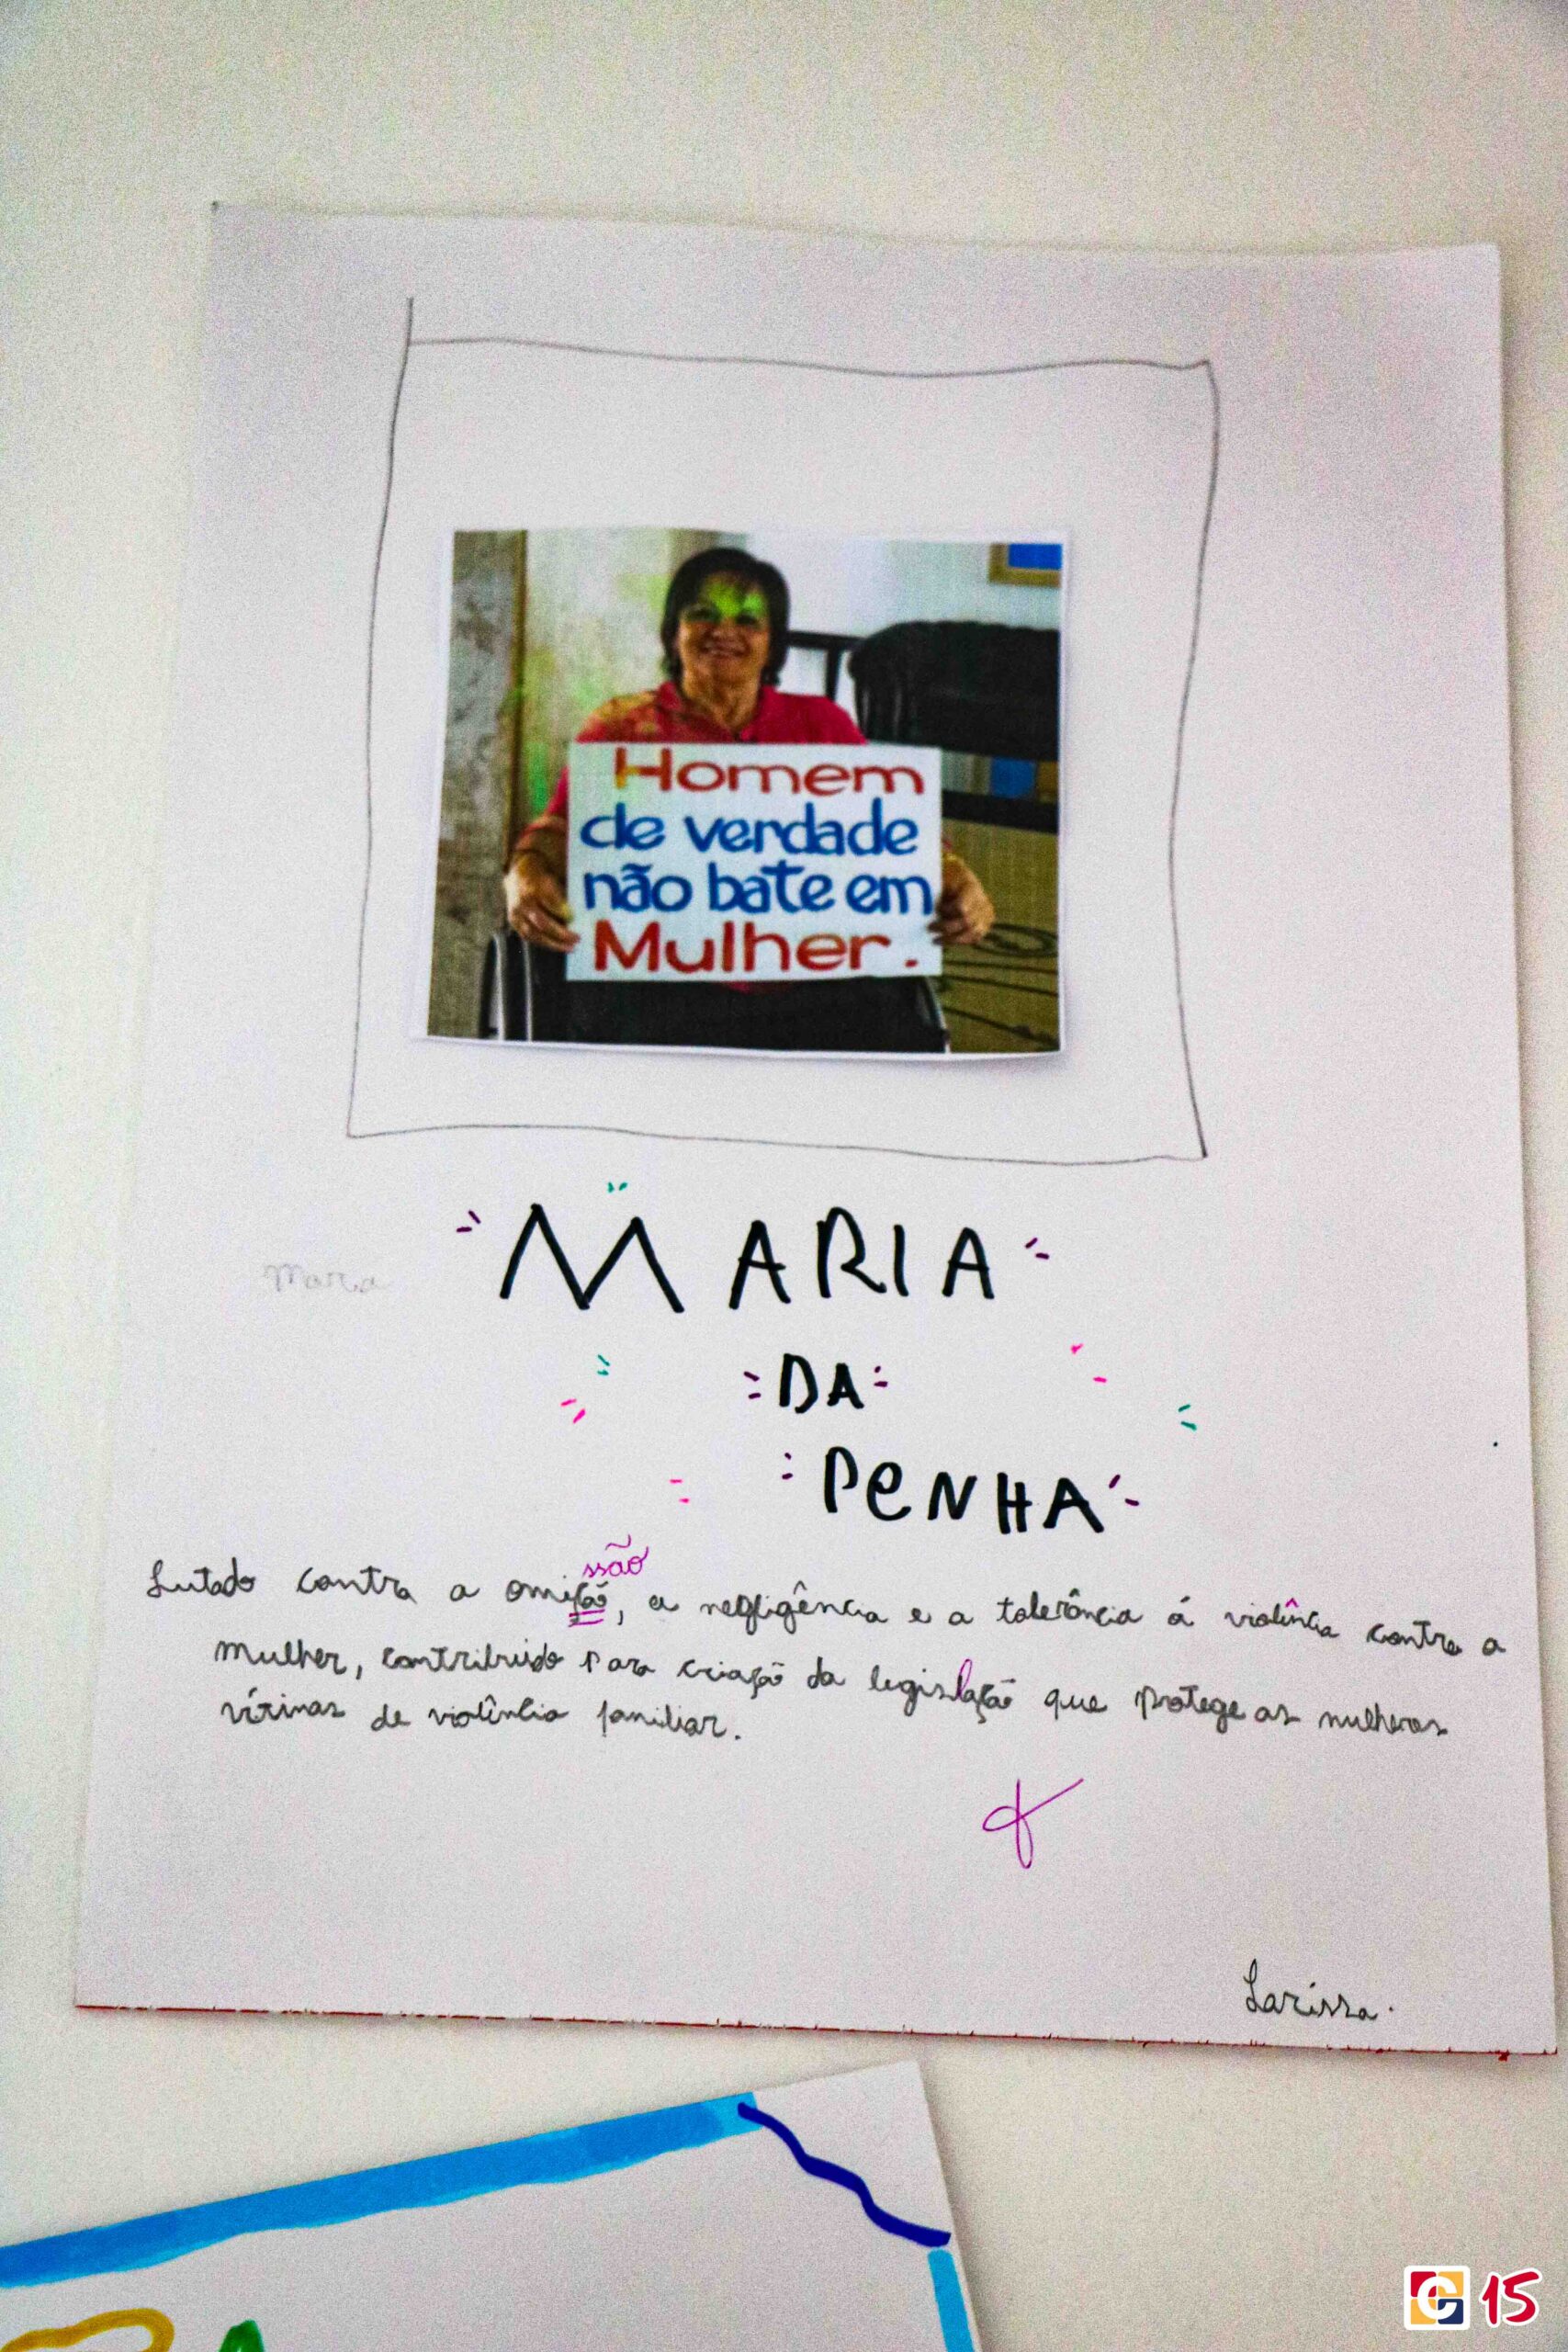 Homem
de verdade
não bate em
Mulher.
MARIA
Maria
DA
PeNHA
ssão
Lutado contra a omição, a negligência e a tolerância á violîncia contra a
mulher, contribuido para criação da legislação que protege as mulheres
vítimas de violîncia familiar.
Larissa.
15